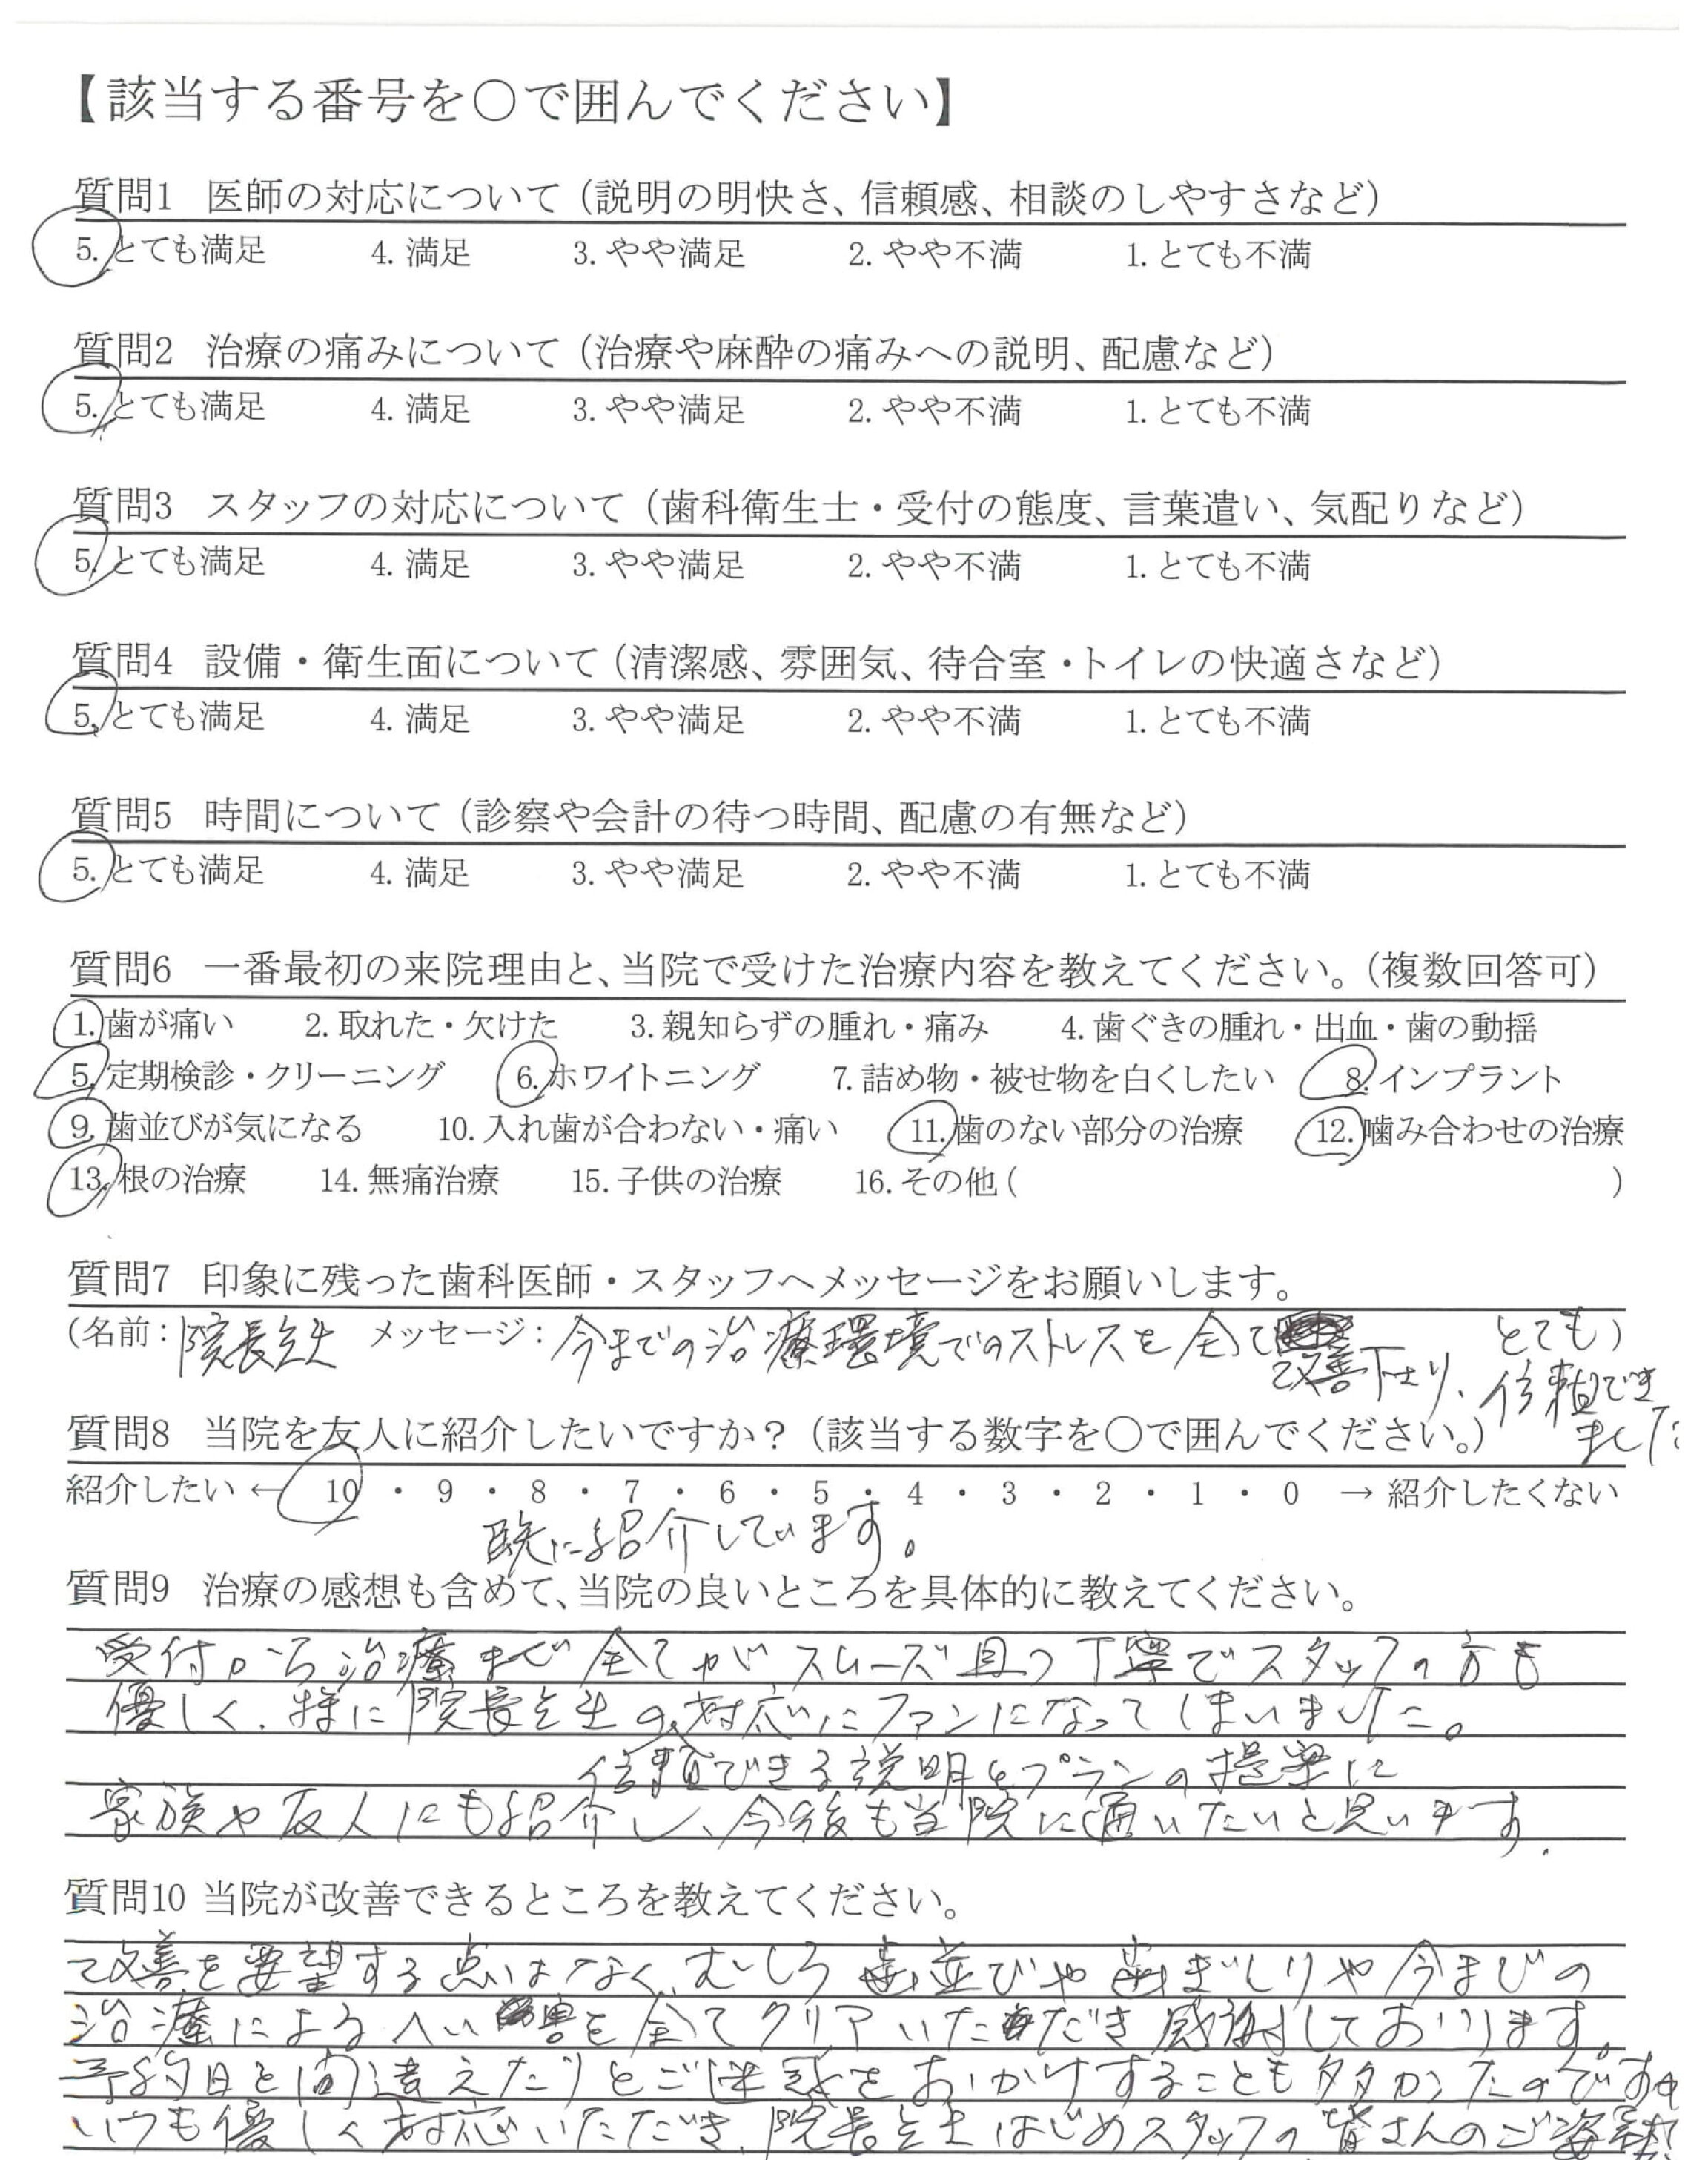 【該当する番号を○で囲んでください】
質問1 医師の対応について（説明の明快さ、信頼感、相談のしやすさなど）
5. とても満足 4. 満足 3. やや満足 2. やや不満 1. とても不満
質問2 治療の痛みについて（治療や麻酔の痛みへの説明、配慮など）
5. とても満足 4. 満足 3. やや満足 2. やや不満 1. とても不満
質問3 スタッフの対応について（歯科衛生士・受付の態度、言葉遣い、気配りなど）
5. とても満足 4. 満足 3. やや満足 2. やや不満 1. とても不満
質問4 設備・衛生面について（清潔感、雰囲気、待合室・トイレの快適さなど）
5. とても満足 4. 満足 3. やや満足 2. やや不満 1. とても不満
質問5 時間について（診察や会計の待つ時間、配慮の有無など）
5. とても満足 4. 満足 3. やや満足 2. やや不満 1. とても不満
質問6 一番最初の来院理由と、当院で受けた治療内容を教えてください。（複数回答可）
1. 歯が痛い 2. 取れた・欠けた 3. 親知らずの腫れ・痛み 4. 歯ぐきの腫れ・出血・歯の動揺
5. 定期検診・クリーニング 6. ホワイトニング 7. 詰め物・被せ物を白くしたい 8. インプラント
9. 歯並びが気になる 10. 入れ歯が合わない・痛い 11. 歯のない部分の治療 12. 噛み合わせの治療
13. 根の治療 14. 無痛治療 15. 子供の治療 16. その他（ ）
質問7 印象に残った歯科医師・スタッフへメッセージをお願いします。
（名前：院長先生 メッセージ：今までの治療環境でのストレスを全て とても）
改善下さり、信頼でき
ました
質問8 当院を友人に紹介したいですか？（該当する数字を○で囲んでください。）
紹介したい ← 10 ・ 9 ・ 8 ・ 7 ・ 6 ・ 5 ・ 4 ・ 3 ・ 2 ・ 1 ・ 0 → 紹介したくない
既に紹介しています。
質問9 治療の感想も含めて、当院の良いところを具体的に教えてください。
受付から治療まで全てがスムーズ且つ丁寧でスタッフの方も
優しく、特に院長先生の対応にファンになってしまいました。
信頼できる説明とプランの提案に
家族や友人にも紹介し、今後も当院に通いたいと思います.
質問10 当院が改善できるところを教えてください。
改善を要望する点はなく、むしろ歯並びや歯ぎしりや今までの
治療による 害を全てクリアいただき感謝しております。
予約日を間違えたりとご迷惑をおかけすることも多々かったのですが
いつも優しく対応いただき、院長先生はじめスタッフの皆さんのご姿勢